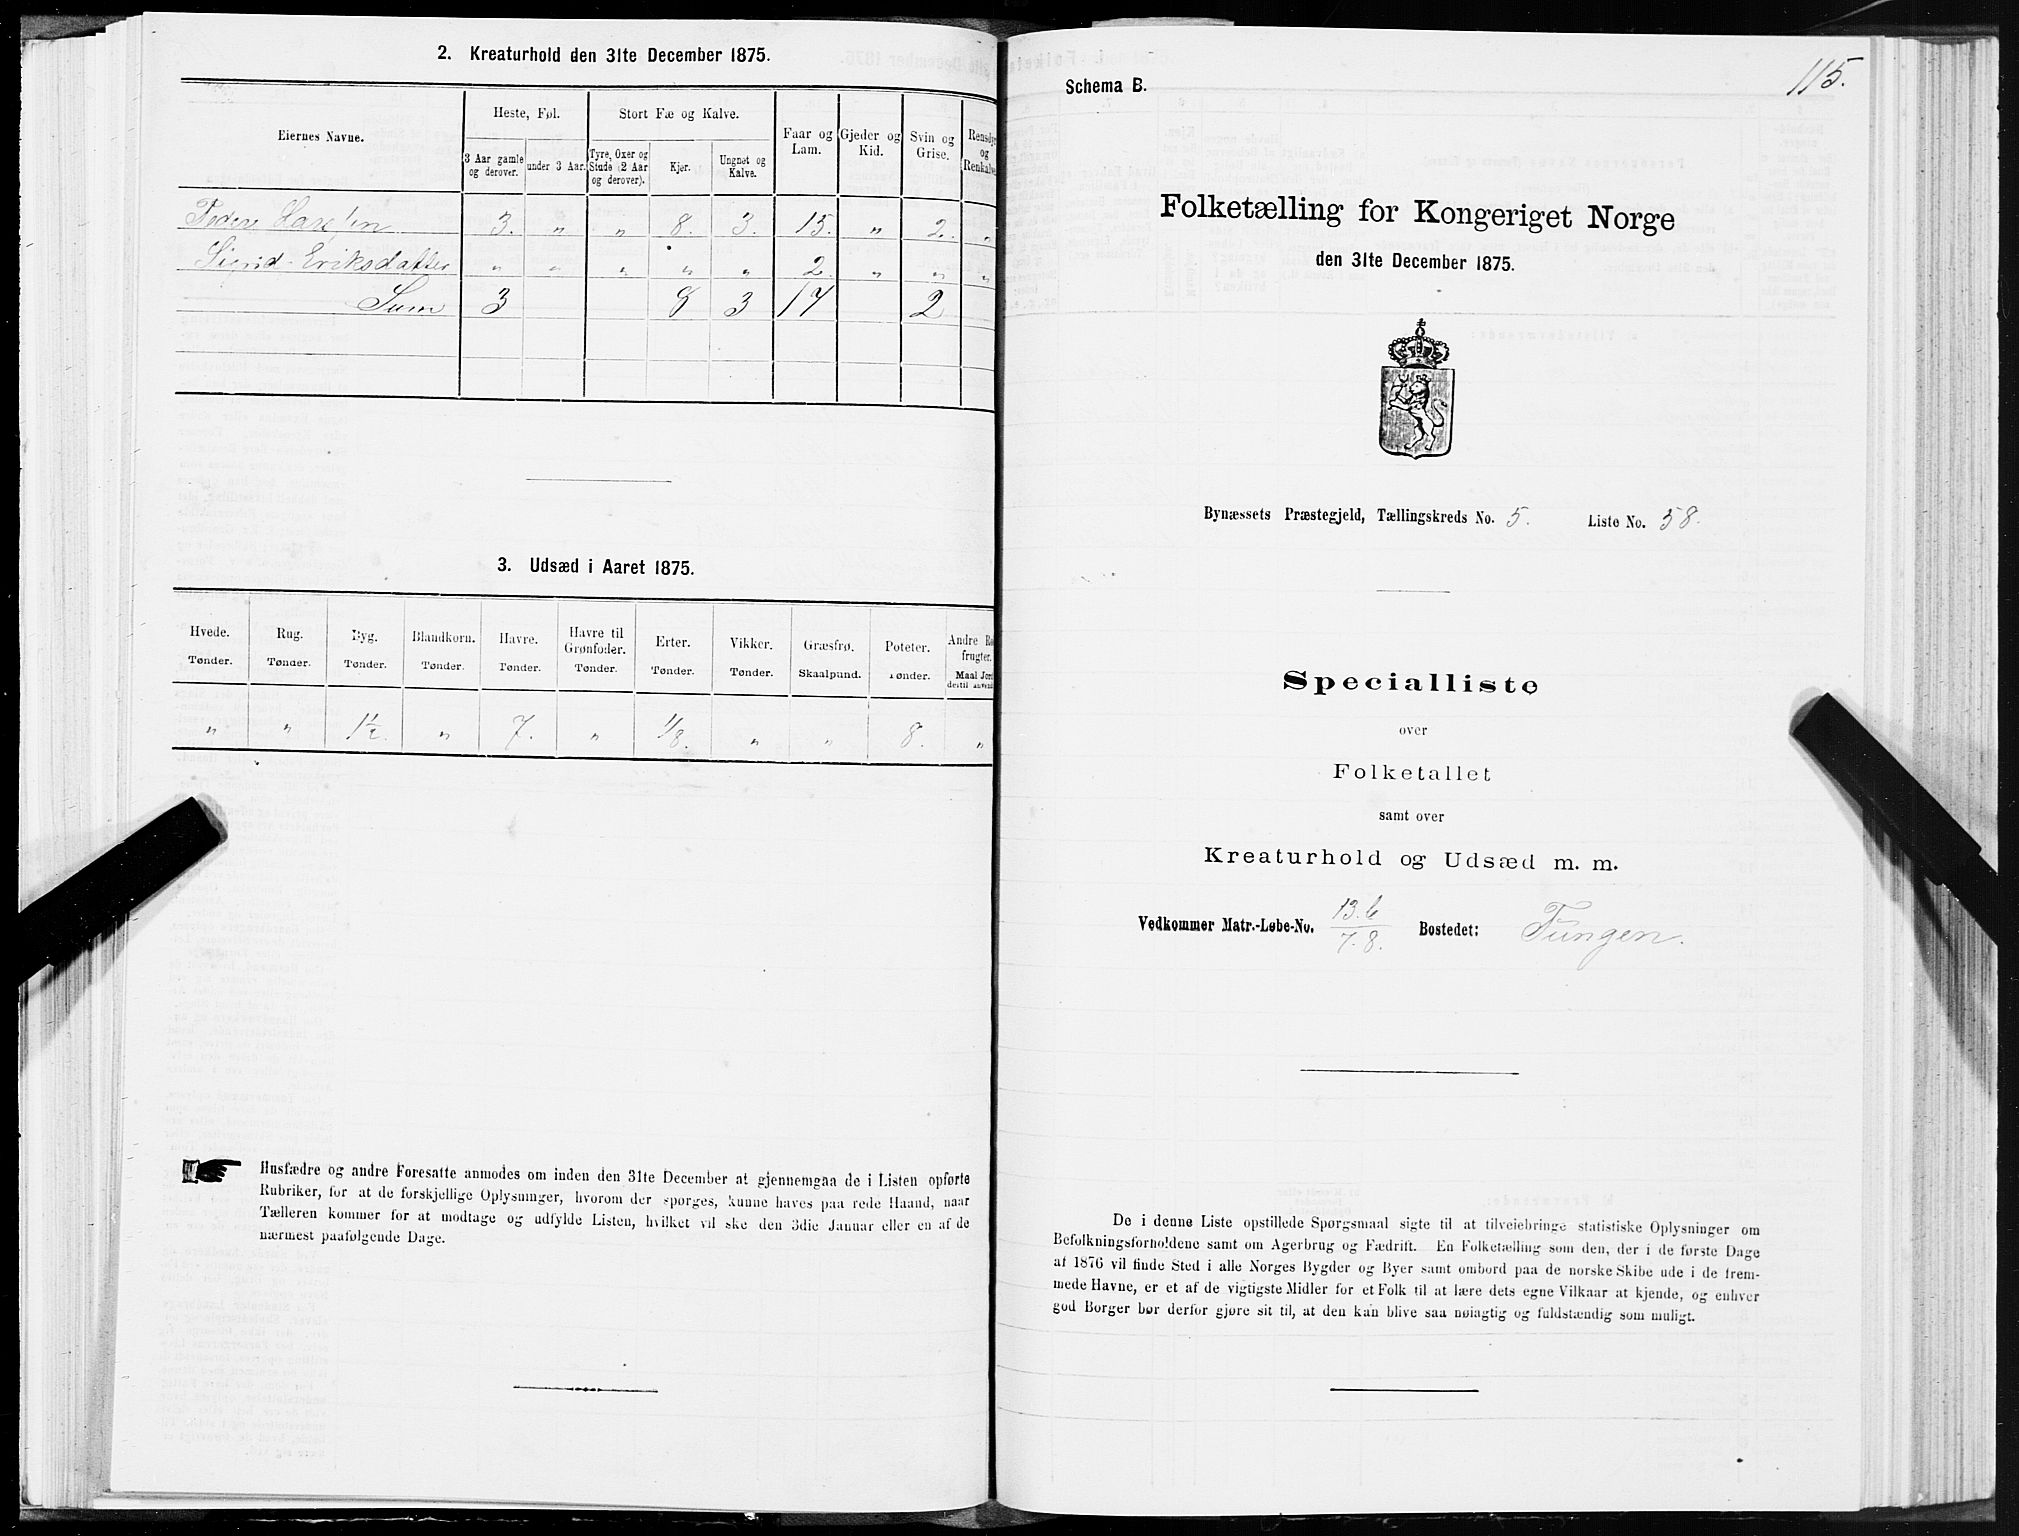 2. Kreaturhold den 31te December 1875.
Eiernes Navne.
Heste, Føl.
Stort Fæ og Kalve.
Faar og Lam.
Gjeder og Kid.
Svin og Grise.
Rensdyr og Renkalve
3 Aar gamle og derover.
under 3 Aar.
Tyre, Oxer og Stude (2 Aar og derover).
Kjør.
Ungnet og Kalve.
Peder 3. " " 8. 3. 15. " 2. "
Sigrid Eriksdatter " " " " " 2. " " "
Sum 3 8 3 17 2
3. Udsæd i Aaret 1875.
Hvede. Rug. Byg. Blandkorn. Havre. Havre til Grønfoder. Erter. Vikker. Græsfrø. Poteter. Andre
frugter.
Tønder. Tønder. Tønder. Tønder. Tønder. Tønder. Tønder. Tønder. Skaalpund. Tønder. Maal Jord
dertil
" " 1½ " 7. " 1/8. " " 8. "
Husfædre og andre Foresatte anmodes om inden den 31te December at gjennemgaa de i Listen opførte
Rubriker, for at de forskjellige Oplysninger, hvorom der spørges, kunne haves paa rede Haand, naar
Tælleren kommer for at modtage og udfylde Listen, hvilket vil ske den 3die Januar eller en af de
nærmest paafølgende Dage.
115.
Schema B.
Folketælling for Kongeriget Norge
den 31te December 1875.
Bynæssets Præstegjeld, Tællingskreds No. 5. Liste No. 58.
Specialliste
over
Folketallet
samt over
Kreaturhold og Udsæd m. m.
Vedkommer Matr.-Løbe-No. 13.b / 7.8. Bostedet: Tungen.
De i denne Liste opstillede Spørgsmaal sigte til at tilveiebringe statistiske Oplysninger om
Befolkningsforholdene samt om Agerbrug og Fædrift. En Folketælling som den, der i de første Dage
af 1876 vil finde Sted i alle Norges Bygder og Byer samt ombord paa de norske Skibe ude i de frem-
mede Havne, er et af de vigtigste Midler for et Folk til at lære dets egne Vilkaar at kjende, og enhver
god Borger bør derfor gjøre sit til, at den kan blive saa nøiagtig og fuldstændig som muligt.